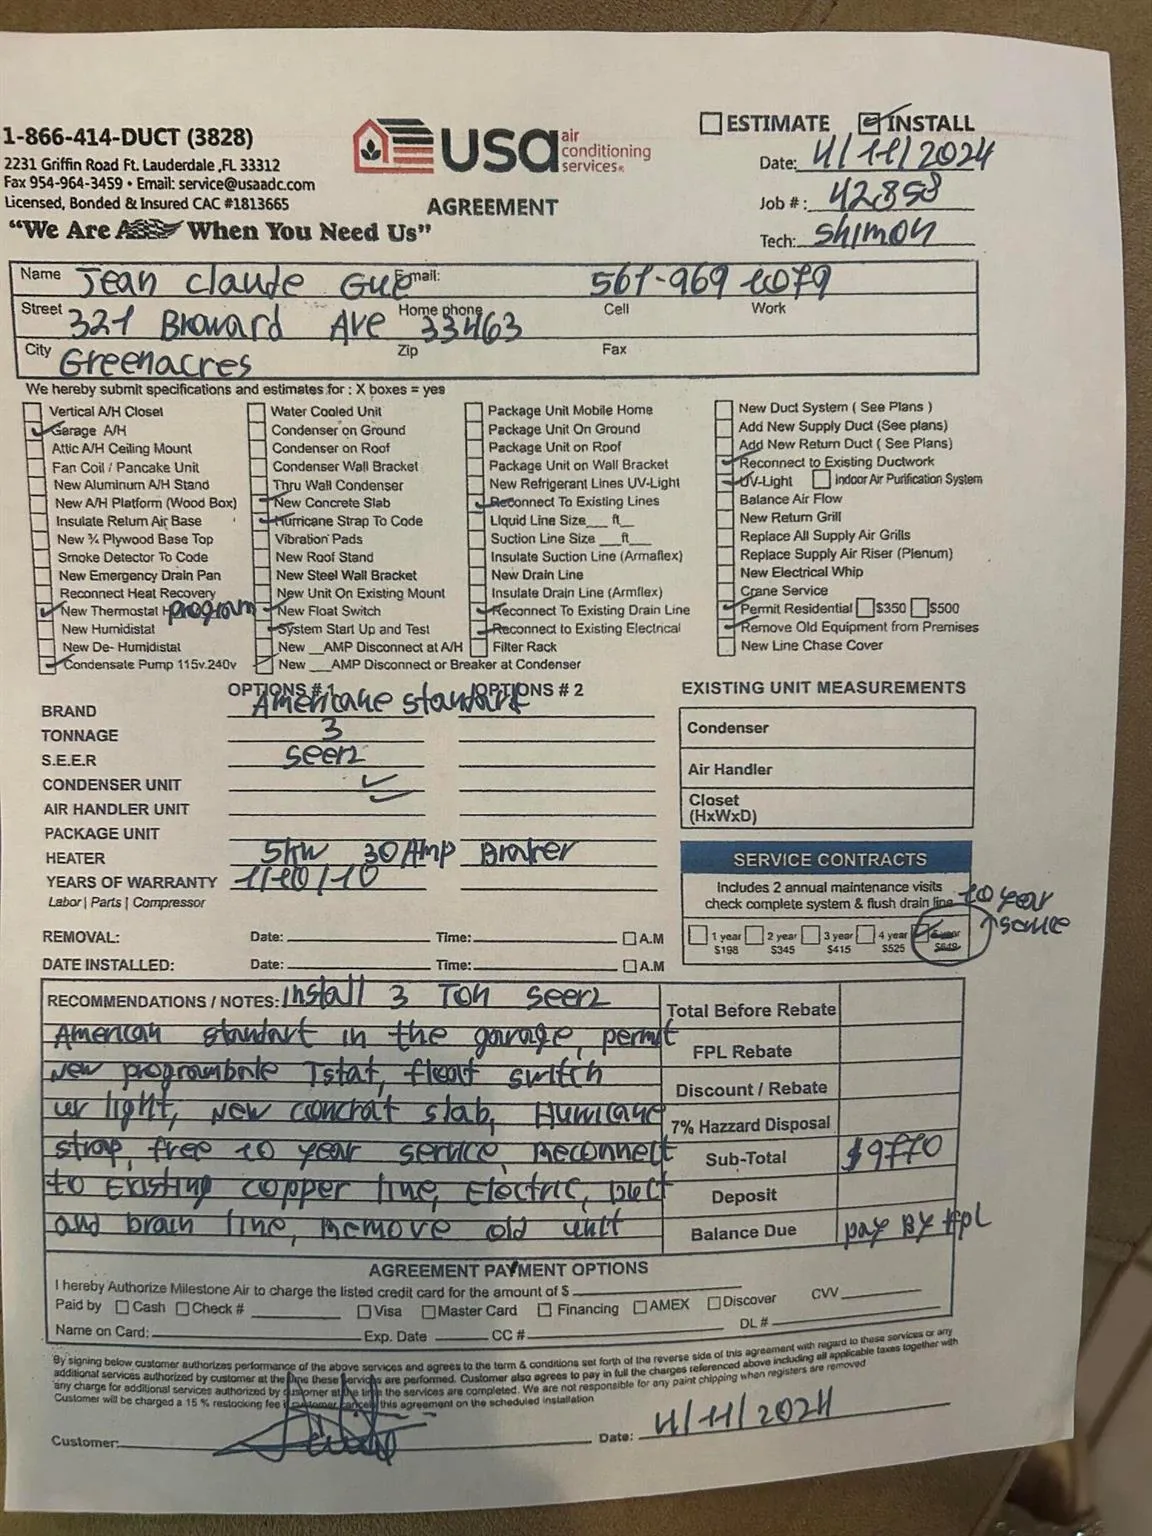 1-866-414-DUCT (3828)
2231 Griffin Road Ft. Lauderdale ,FL 33312
Fax 954-964-3459 • Email: service@usaadc.com
Licensed, Bonded & Insured CAC #1813665
"We Are When You Need Us"
usa air conditioning services
AGREEMENT
ESTIMATE INSTALL
Date: 4/11/2024
Job #: 42858
Tech: Shimon
Name Jean Claude Gue Email: 561-969 1079
Street 321 Broward Ave Home phone 33463 Cell Work
City Greenacres Zip Fax
We hereby submit specifications and estimates for : X boxes = yes
Vertical A/H Closet
Garage A/H
Attic A/H Ceiling Mount
Fan Coil / Pancake Unit
New Aluminum A/H Stand
New A/H Platform (Wood Box)
Insulate Return Air Base
New ¾ Plywood Base Top
Smoke Detector To Code
New Emergency Drain Pan
Reconnect Heat Recovery
New Thermostat program
New Humidistat
New De- Humidistat
Condensate Pump 115v.240v
Water Cooled Unit
Condenser on Ground
Condenser on Roof
Condenser Wall Bracket
Thru Wall Condenser
New Concrete Slab
Hurricane Strap To Code
Vibration Pads
New Roof Stand
New Steel Wall Bracket
New Unit On Existing Mount
New Float Switch
System Start Up and Test
New __AMP Disconnect at A/H
New ___AMP Disconnect or Breaker at Condenser
Package Unit Mobile Home
Package Unit On Ground
Package Unit on Roof
Package Unit on Wall Bracket
New Refrigerant Lines UV-Light
Reconnect To Existing Lines
Liquid Line Size___ ft__
Suction Line Size ___ft___
Insulate Suction Line (Armaflex)
New Drain Line
Insulate Drain Line (Armflex)
Reconnect To Existing Drain Line
Reconnect to Existing Electrical
Filter Rack
New Duct System ( See Plans )
Add New Supply Duct (See plans)
Add New Return Duct ( See Plans)
Reconnect to Existing Ductwork
UV-Light Indoor Air Purification System
Balance Air Flow
New Return Grill
Replace All Supply Air Grills
Replace Supply Air Riser (Plenum)
New Electrical Whip
Crane Service
Permit Residential $350 $500
Remove Old Equipment from Premises
New Line Chase Cover
OPTIONS # 1 OPTIONS # 2
BRAND Americane standart
TONNAGE 3
S.E.E.R Seer2
CONDENSER UNIT ✓
AIR HANDLER UNIT
PACKAGE UNIT
HEATER 5kw 30 Amp Braker
YEARS OF WARRANTY 1/10/10
Labor | Parts | Compressor
REMOVAL: Date: Time: A.M
DATE INSTALLED: Date: Time: A.M
EXISTING UNIT MEASUREMENTS
Condenser
Air Handler
Closet
(HxWxD)
SERVICE CONTRACTS
Includes 2 annual maintenance visits
check complete system & flush drain line
10 year service
1 year $198
2 year $345
3 year $415
4 year $525
5 year $649
RECOMMENDATIONS / NOTES: Install 3 Ton Seer2
American standart in the garage, permit
New programbole Tstat, float switch
uv light, New concrat slab, Hurricane
strap, free 10 year service, Reconnect
to Existing copper line, Electric, Duct
and brain line, Remove old unit
Total Before Rebate
FPL Rebate
Discount / Rebate
7% Hazzard Disposal
Sub-Total $9770
Deposit
Balance Due pay By FpL
AGREEMENT PAYMENT OPTIONS
I hereby Authorize Milestone Air to charge the listed credit card for the amount of $
Paid by Cash Check # Visa Master Card Financing AMEX Discover CVV
Name on Card: Exp. Date CC # DL #
By signing below customer authorizes performance of the above services and agrees to the term & conditions set forth of the reverse side of this agreement with regard to these services or any
additional services authorized by customer at the time these services are performed. Customer also agrees to pay in full the charges referenced above including all applicable taxes together with
any charge for additional services authorized by customer at the time the services are completed. We are not responsible for any paint chipping when registers are removed
Customer will be charged a 15 % restocking fee if customer cancels this agreement on the scheduled installation
Customer: Date: 4/11/2024